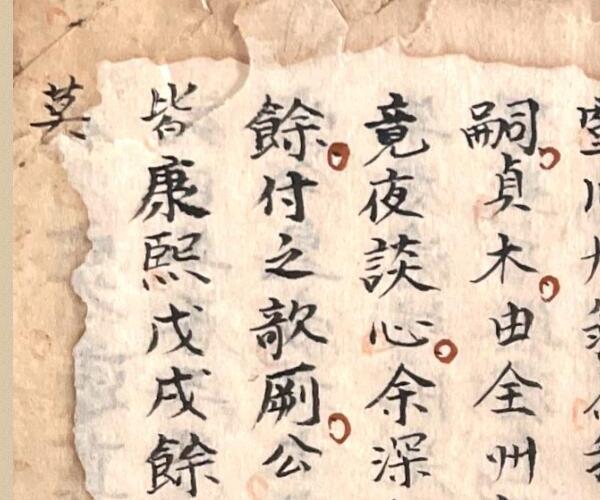 嗣貞木由全州
竟夜談心余深
餘付之歌劂公
皆康熙戊戌餘
莫